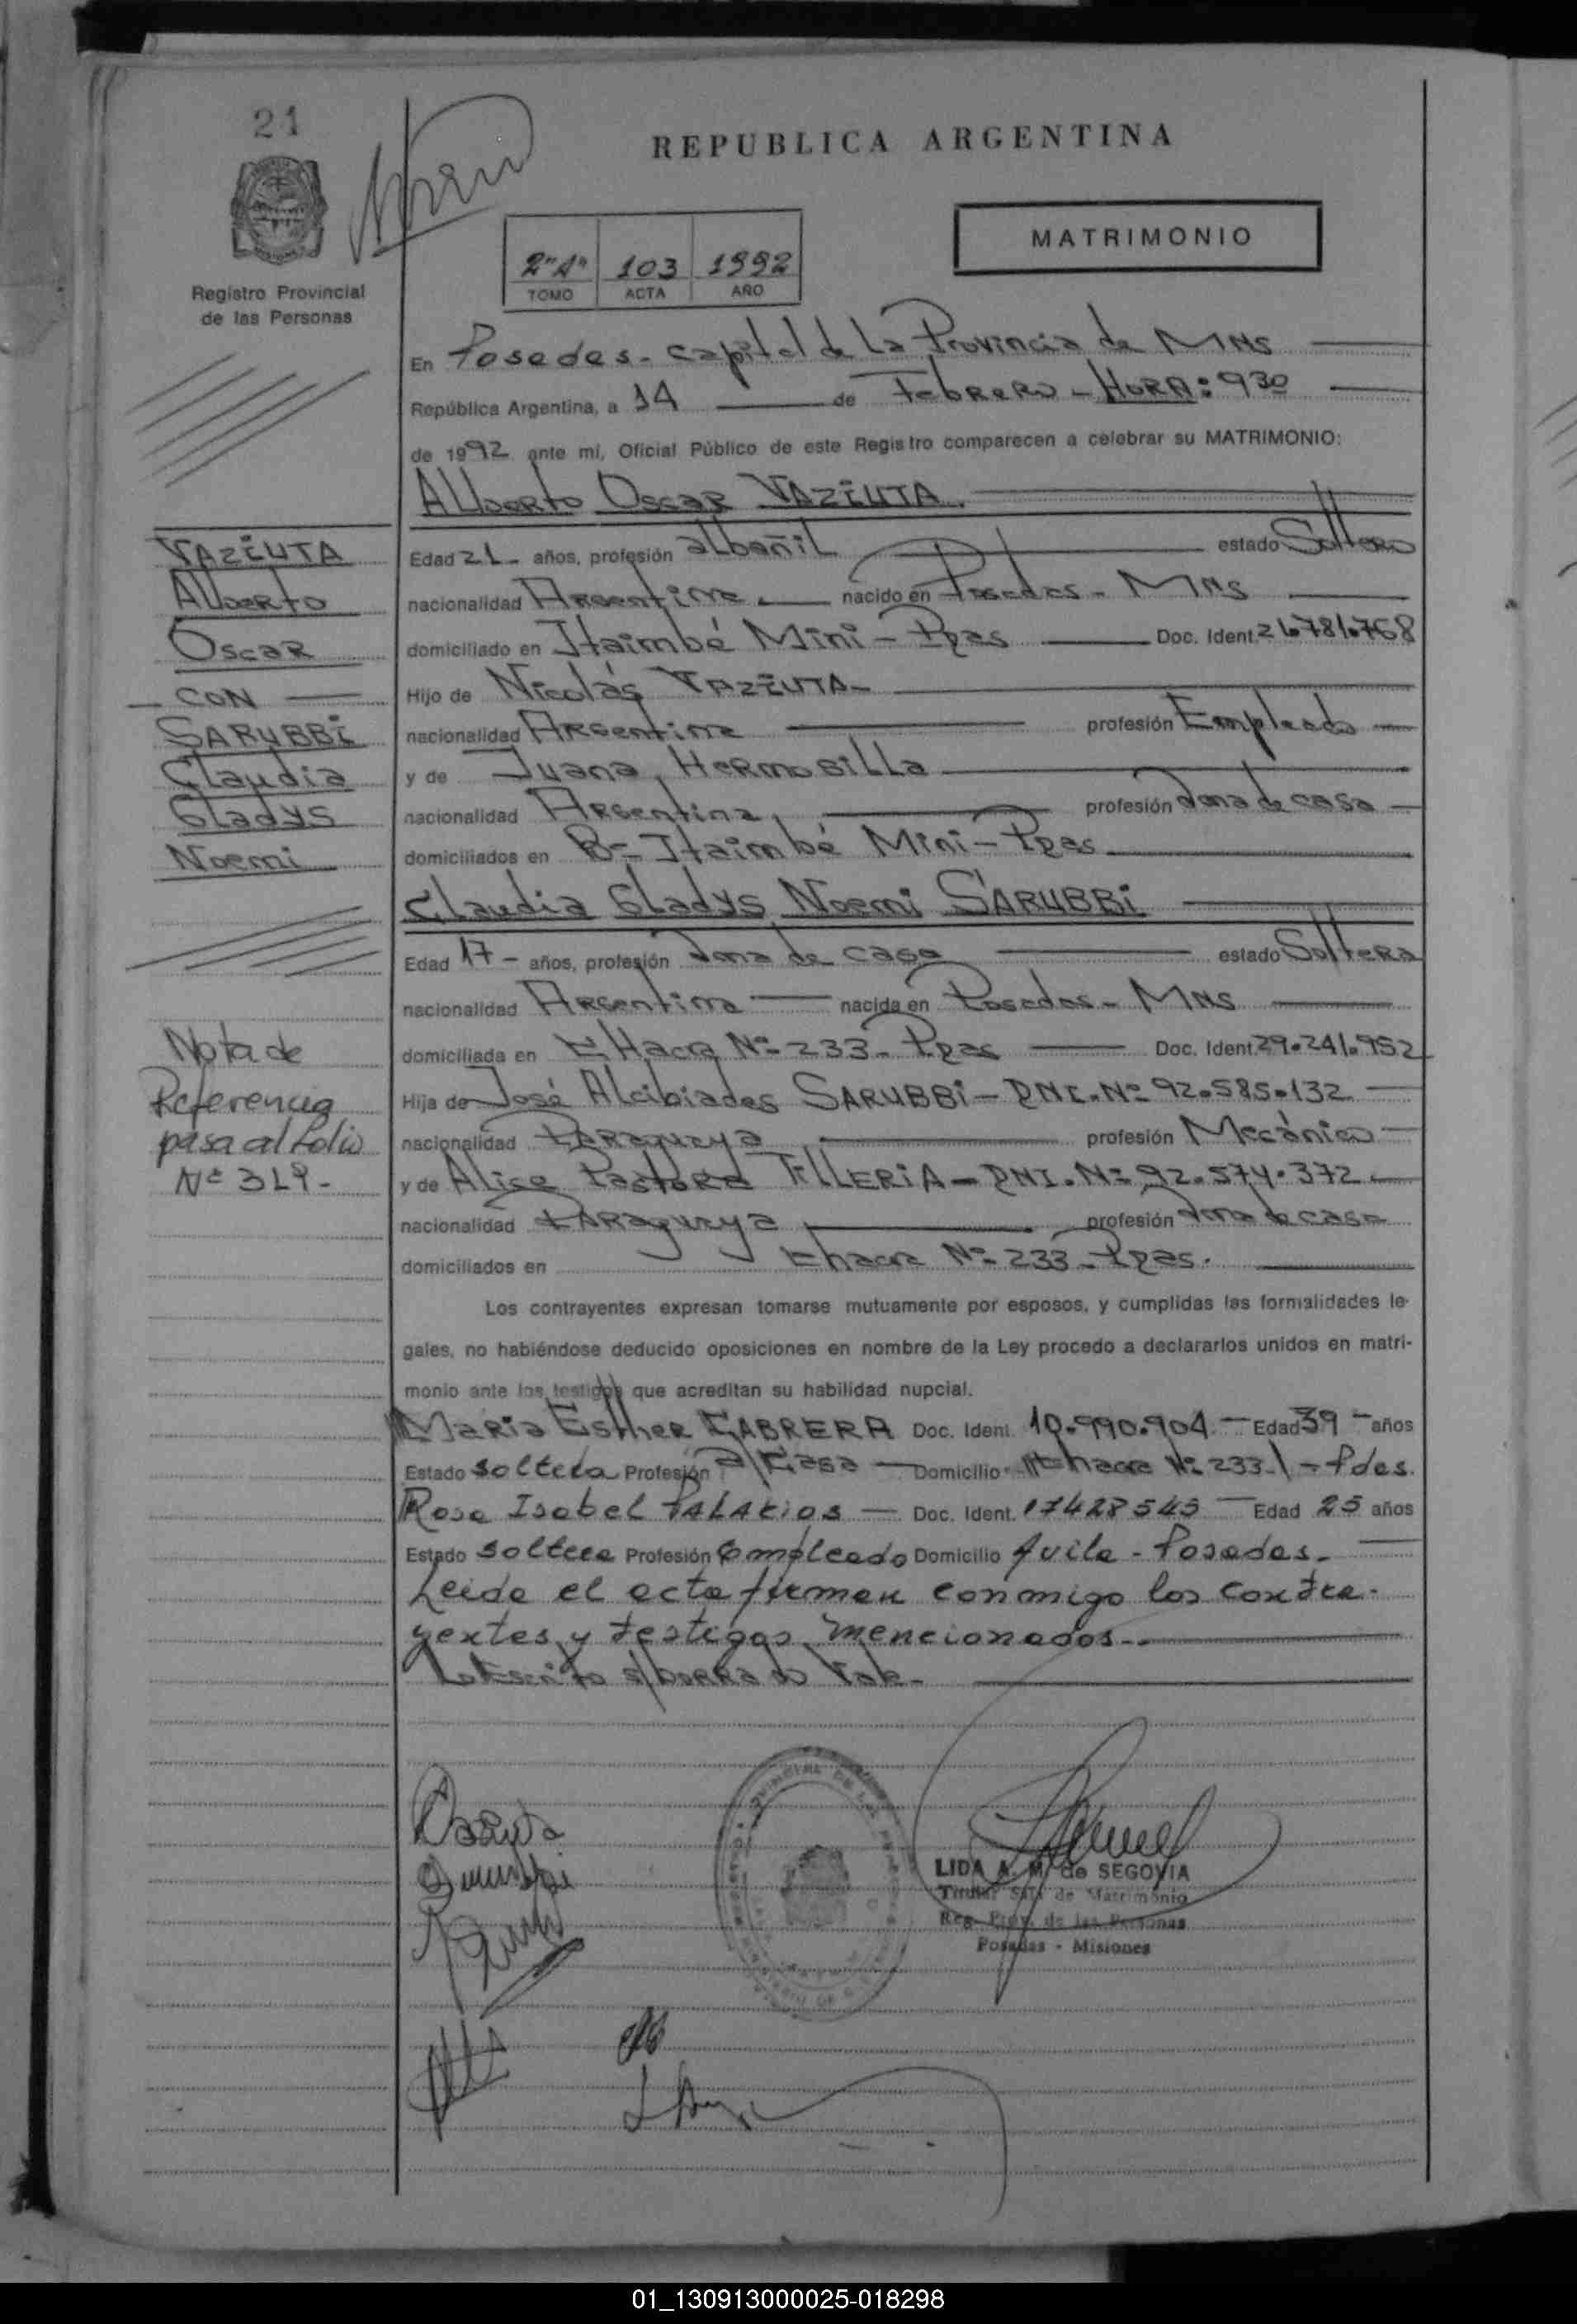 21
REPUBLICA ARGENTINA
MATRIMONIO
2"A" 103 1992
TOMO ACTA AÑO
Registro Provincial
de las Personas
En Posadas - Capital de La Provincia de MNS
República Argentina, a 14 de Febrero - HORA: 930
de 1992 ante mí, Oficial Público de este Registro comparecen a celebrar su MATRIMONIO:
Alberto Oscar VAZIUTA.
VAZIUTA
Alberto
Oscar
CON
SARUBBI
Claudia
Gladys
Noemi
Edad 21 - años, profesión albañil estado Soltero
nacionalidad Argentina nacido en Posadas - MNS
domiciliado en Itaimbé Mini - Pdas Doc. Ident. 21.781.768
Hijo de Nicolás VAZIUTA -
nacionalidad Argentina profesión Empleado
y de Juana, Hermosilla
nacionalidad Argentina, profesión Ama de casa
domiciliados en Bº Itaimbé Mini - Pdas
Claudia Gladys Noemi SARUBBI
Edad 17 - años, profesión Ama de casa estado Soltera
nacionalidad Argentina nacida en Posadas - MNS
domiciliada en CHacra Nº 233 - Pdas Doc. Ident. 29.241.952
Hija de José Alcibiades SARUBBI - DNI. Nº 92.585.132
nacionalidad Paraguaya profesión Mecánico
y de Alice Pastora TILLERIA - DNI. Nº 92.574.372
nacionalidad Paraguaya profesión Ama de casa
domiciliados en Chacra Nº 233 - Pdas.
Nota de
Referencia
pasa al folio
Nº 319 -
Los contrayentes expresan tomarse mutuamente por esposos, y cumplidas las formalidades le-
gales, no habiéndose deducido oposiciones en nombre de la Ley procedo a declararlos unidos en matri-
monio ante los testigos que acreditan su habilidad nupcial.
Maria Esther CABRERA Doc. Ident. 10.990.904 - Edad 39 - años
Estado soltera Profesión a/Casa - Domicilio Chacra Nº 233 - Pdas.
Rosa Isabel PALACIOS - Doc. Ident. 17428545 - Edad 25 años
Estado soltera Profesión Empleada Domicilio Avila - Posadas.
Leida el acta firman conmigo los contra-
yentes y testigos mencionados. -
Lo Escrito s/borrado Vale -
LIDA A. M. de SEGOVIA
Titular Sala de Matrimonio
Reg. Prov. de las Personas
Posadas - Misiones
01_130913000025-018298